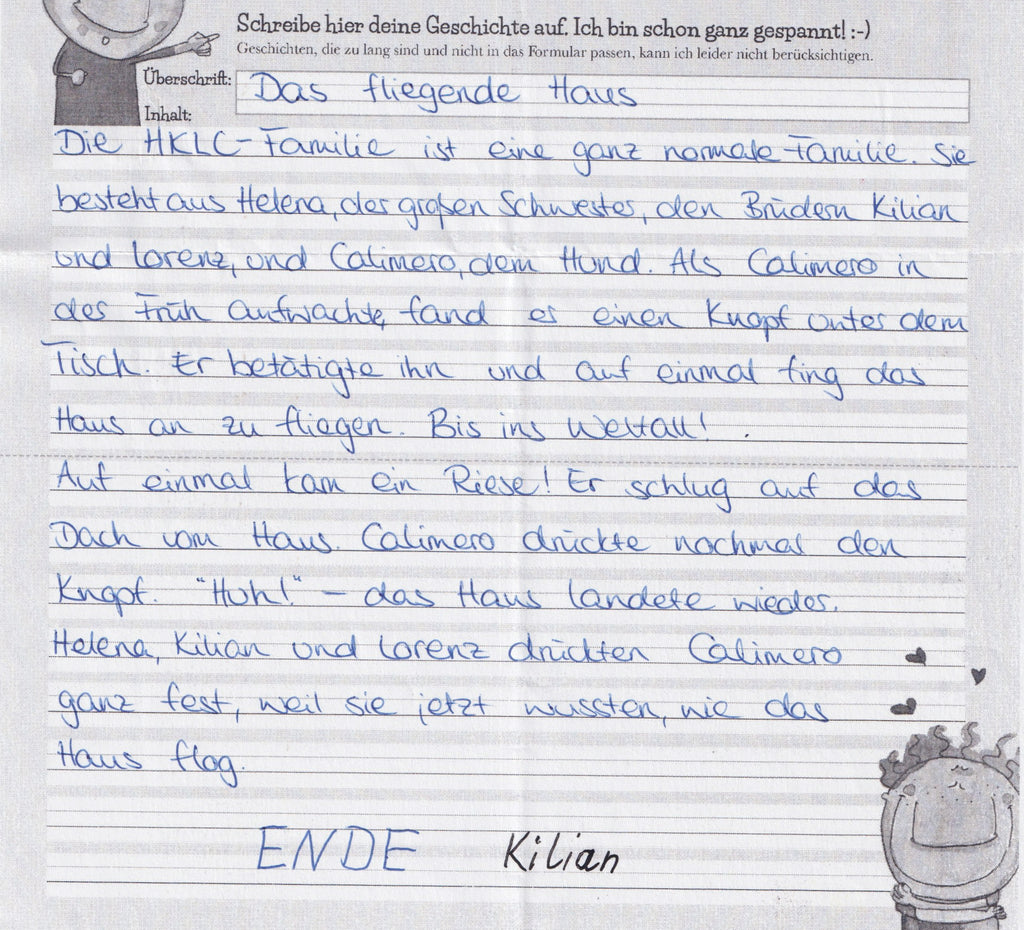 Schreibe hier deine Geschichte auf. Ich bin schon ganz gespannt! :-)
Geschichten, die zu lang sind und nicht in das Formular passen, kann ich leider nicht berücksichtigen.
Überschrift: Das fliegende Haus
Inhalt:
Die HKLC-Familie ist eine ganz normale Familie. Sie
besteht aus Helena, der großen Schwester, den Brüdern Kilian
und Lorenz, und Calimero, dem Hund. Als Calimero in
der Früh aufwachte, fand er einen Knopf unter dem
Tisch. Er betätigte ihn und auf einmal fing das
Haus an zu fliegen. Bis ins Weltall! .
Auf einmal kam ein Riese! Er schlug auf das
Dach vom Haus. Calimero drückte nochmal den
Knopf. "Huh!" - das Haus landete wieder.
Helena, Kilian und Lorenz drückten Calimero
ganz fest, weil sie jetzt wussten, wie das
Haus flog.
ENDE Kilian